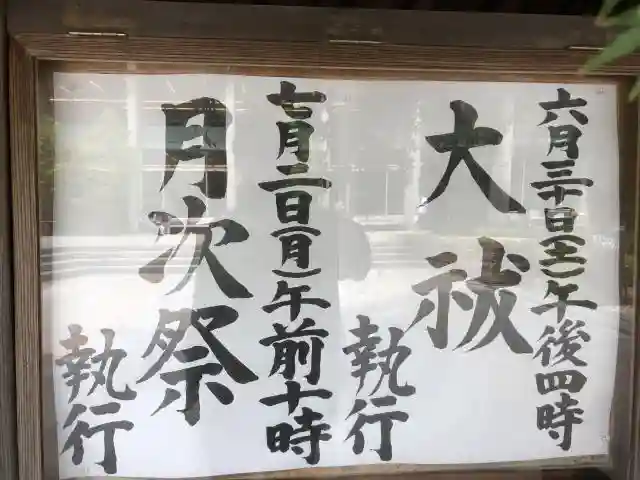 六月三十日(土)午後四時
大祓
執行
七月二日(月)午前十時
月次祭
執行